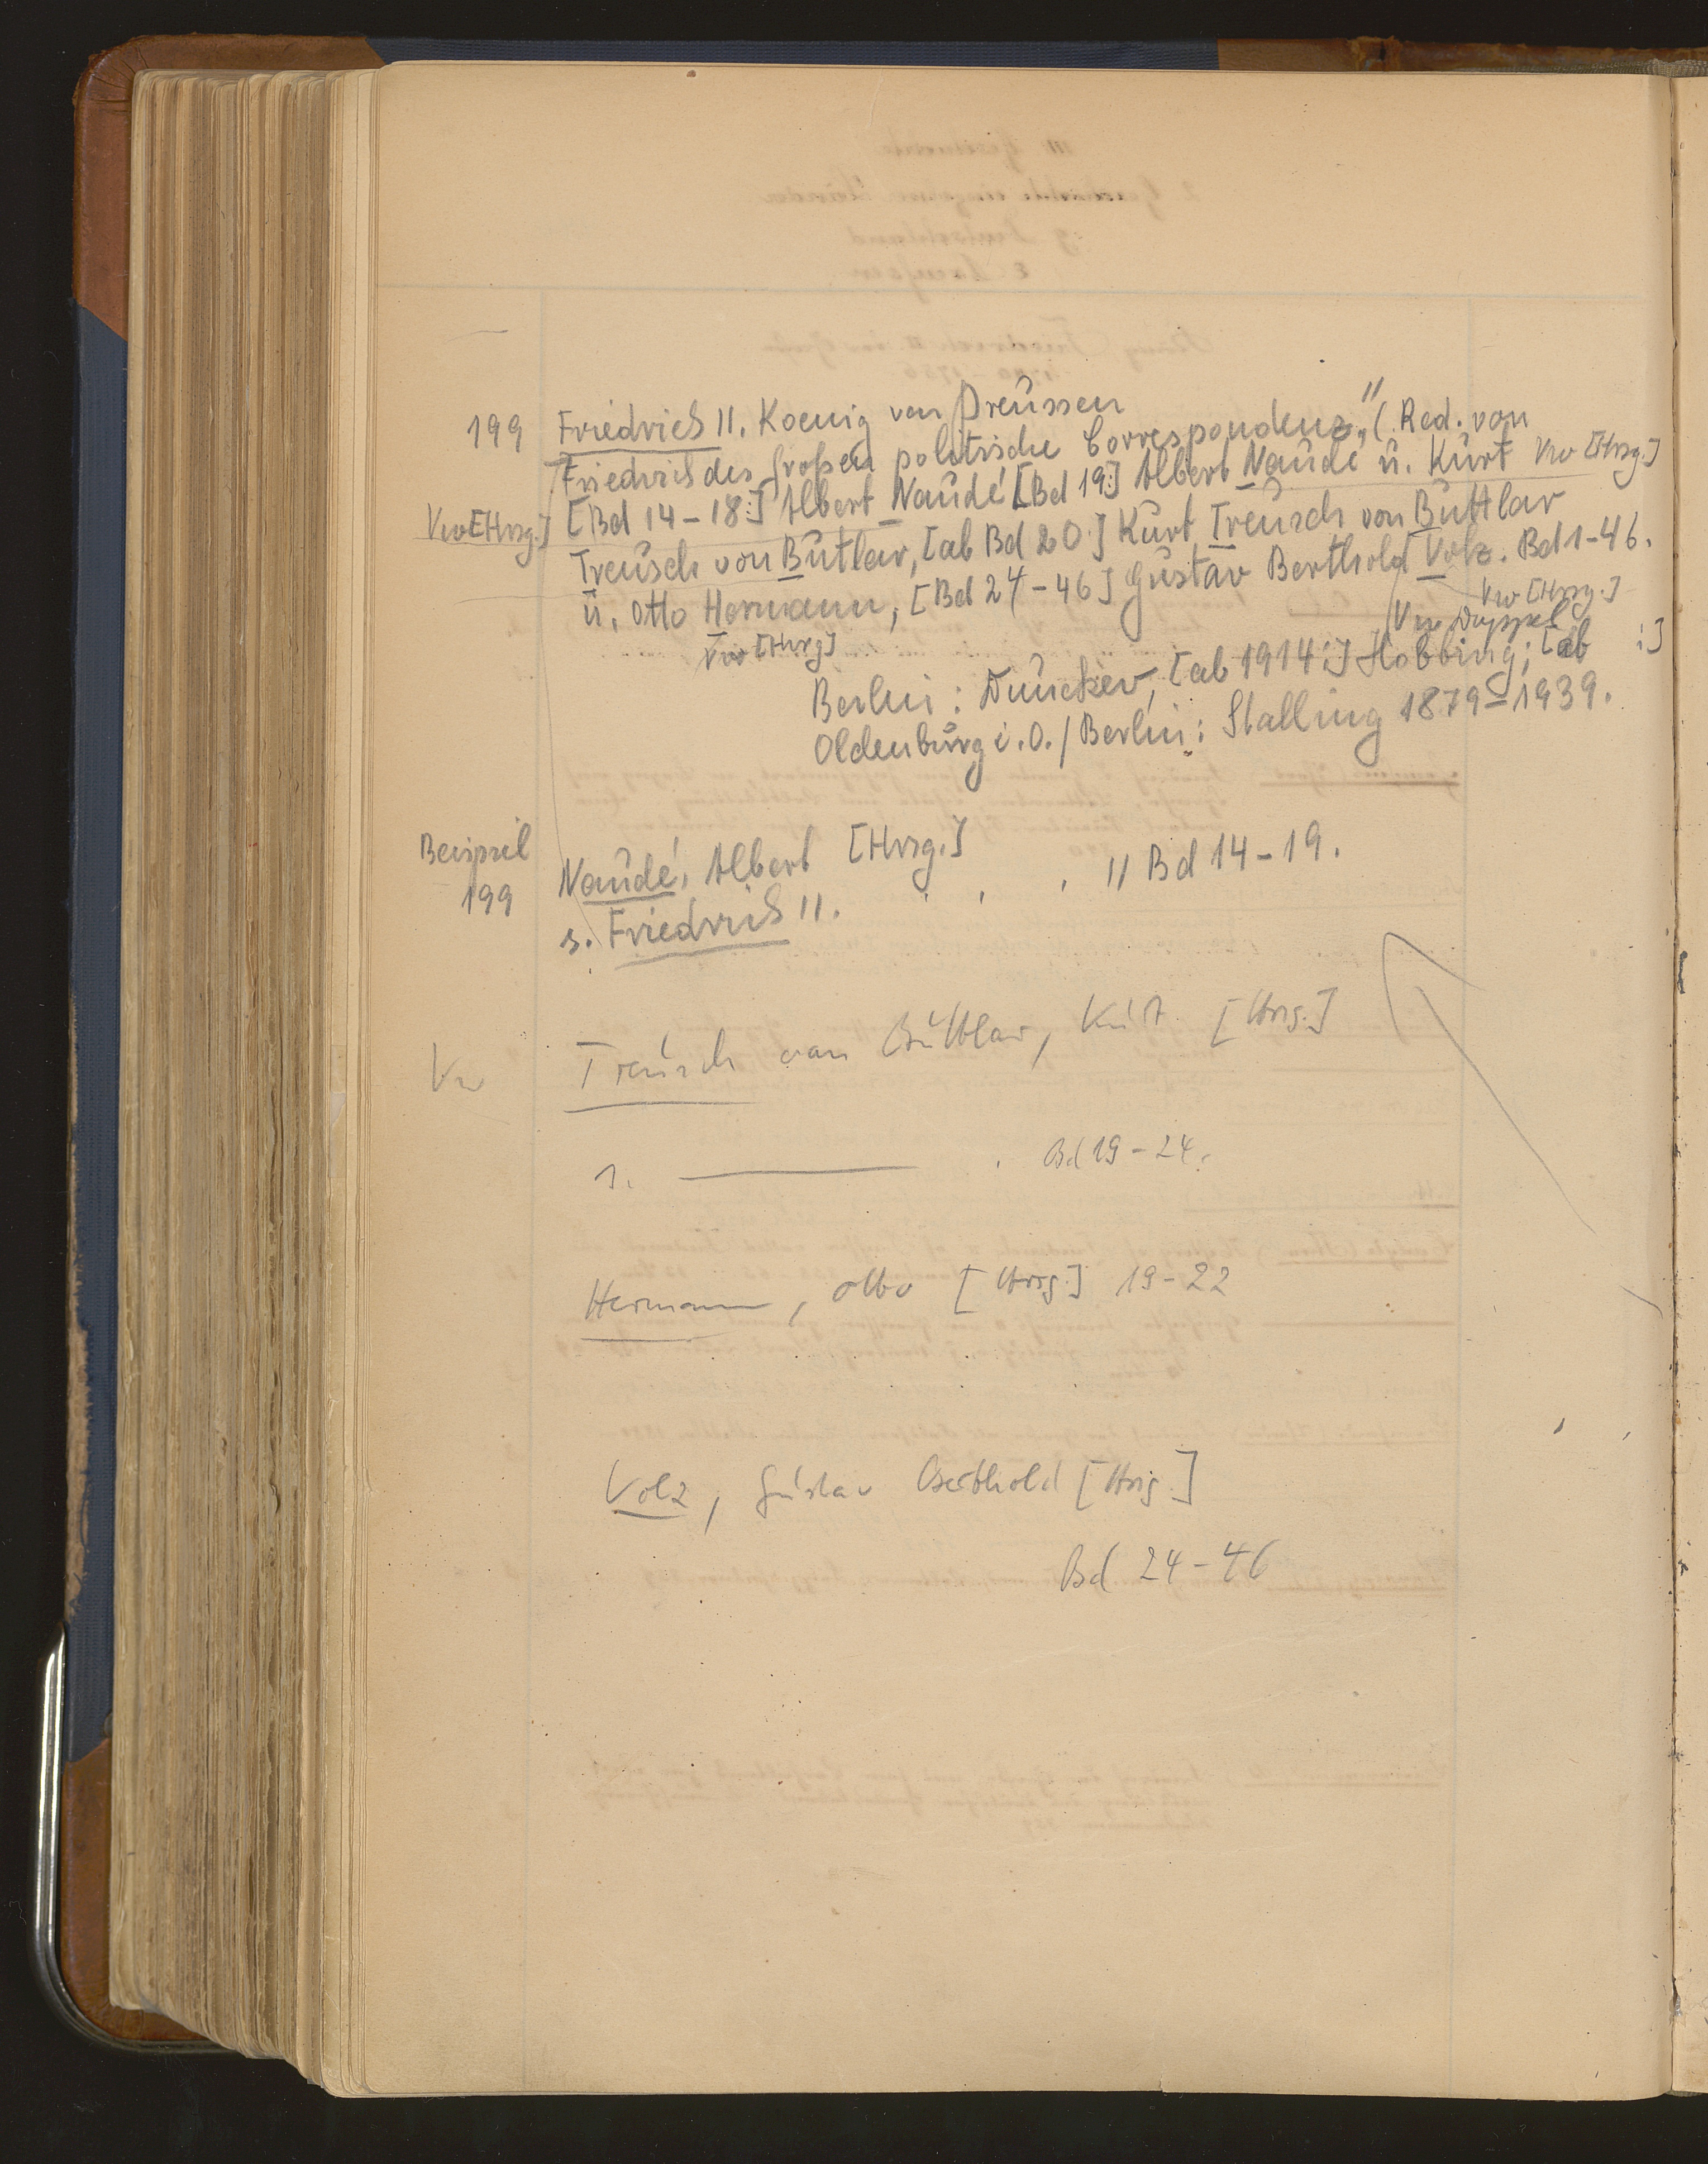 199 Friedrich II. Koenig von Preussen
Friedrich des Großen politische Correspondenz," (Red. von
[Bd 14-18:] Albert Naudé [Bd 19:] Albert Naudé u. Kurt Vw [Hrsg.]
Vw [Hrsg.] Treusch von Butlar, [ab Bd 20:] Kurt Treusch von Buttlar
u. Otto Hermann, [Bd 24-46] Gustav Berthold Volz. Bd 1-46.
Vw [Hrsg] Vw [Hrsg.]
Vw Doppel
Berlin: Duncker, [ab 1914:] Hobbing; [ab :]
Oldenburg i. O./Berlin: Stalling 1879-1939.
Beispiel
199 Naudé, Albert [Hrsg.]
s. Friedrich II. . . . // Bd 14-19.
Vw Treusch von Buttlar, Kurt [Hrsg.]
s. — . Bd 19-24.
Hermann, Otto [Hrsg.] 19-22
Volz, Gustav Berthold [Hrsg.]
Bd 24-46